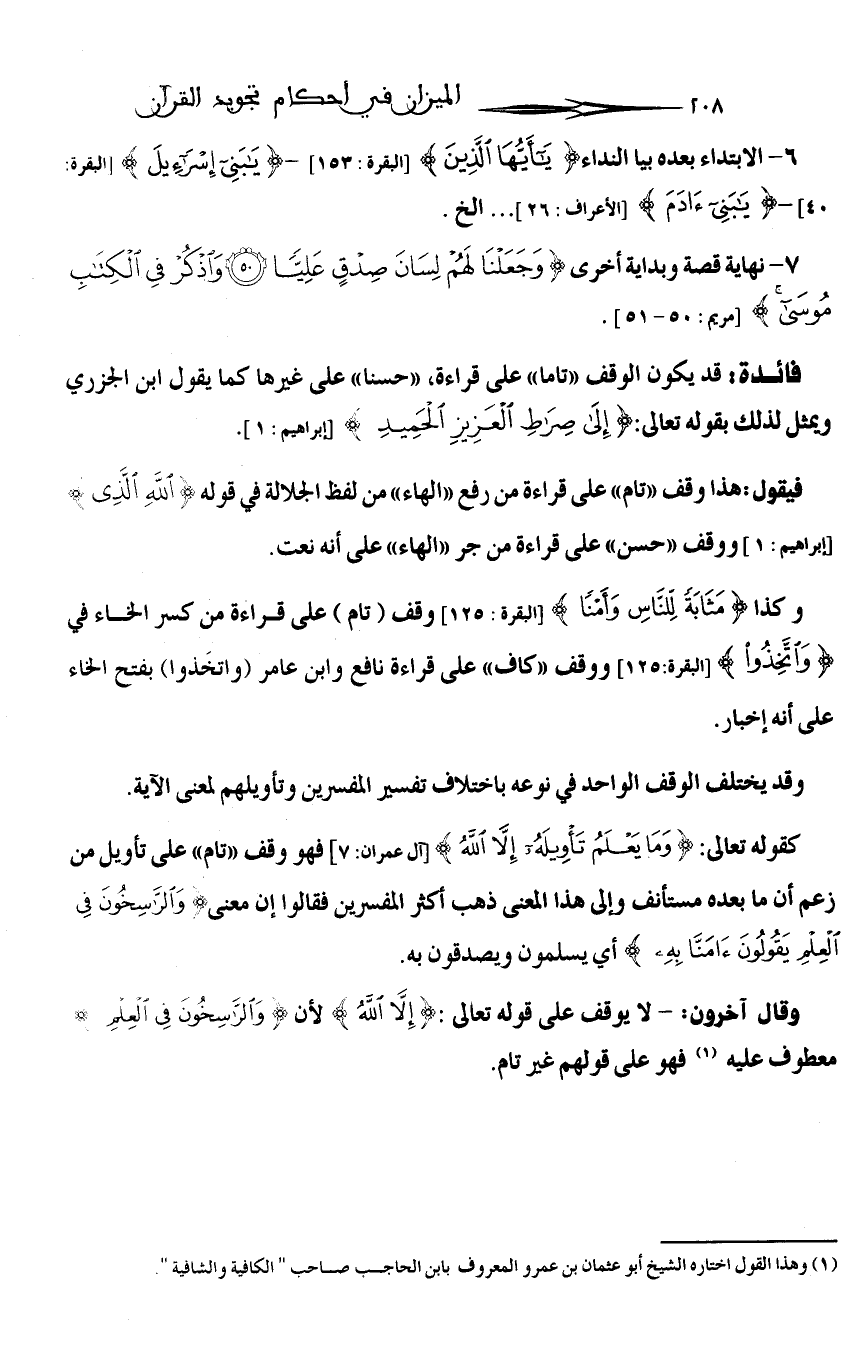 ٢٠٨ الميزان في أحكام تجويد القرآن
٦- الابتداء بعده بيا النداء ﴿ يَٰٓأَيُّهَا ٱلَّذِينَ ﴾ [البقرة : ١٥٣] -﴿ يَٰبَنِىٓ إِسْرَٰٓءِيلَ ﴾ [البقرة:
٤٠] -﴿ يَٰبَنِىٓ ءَادَمَ ﴾ [الأعراف : ٢٦]... الخ .
٧- نهاية قصة وبداية أخرى ﴿ وَجَعَلْنَا لَهُمْ لِسَانَ صِدْقٍ عَلِيًّا ۝٥٠ وَٱذْكُرْ فِى ٱلْكِتَٰبِ
مُوسَىٰٓ ۚ ﴾ [مريم : ٥٠ - ٥١] .
فائـدة: قد يكون الوقف «تاما» على قراءة، «حسنا» على غيرها كما يقول ابن الجزري
ويمثل لذلك بقوله تعالى:﴿ إِلَىٰ صِرَٰطِ ٱلْعَزِيزِ ٱلْحَمِيدِ ﴾ [إبراهيم : ١].
فيقول:هذا وقف «تام» على قراءة من رفع «الهاء» من لفظ الجلالة في قوله ﴿ ٱللَّهِ ٱلَّذِى ﴾
[إبراهيم : ١] ووقف «حسن» على قراءة من جر «الهاء» على أنه نعت.
و كذا ﴿ مَثَابَةً لِّلنَّاسِ وَأَمْنًا ﴾ [البقرة : ١٢٥] وقف ( تام ) على قـراءة من كسر الخـاء في
﴿ وَٱتَّخِذُوا۟ ﴾ [البقرة:١٢٥] ووقف «كاف» على قراءة نافع وابن عامر (واتخَذوا) بفتح الخاء
على أنه إخبار.
وقد يختلف الوقف الواحد في نوعه باختلاف تفسير المفسرين وتأويلهم لمعنى الآية.
كقوله تعالى: ﴿ وَمَا يَعْلَمُ تَأْوِيلَهُۥٓ إِلَّا ٱللَّهُ ﴾ [آل عمران: ٧] فهو وقف «تام» على تأويل من
زعم أن ما بعده مستأنف وإلى هذا المعنى ذهب أكثر المفسرين فقالوا إن معنى﴿ وَٱلرَّٰسِخُونَ فِى
ٱلْعِلْمِ يَقُولُونَ ءَامَنَّا بِهِۦ ﴾ أي يسلمون ويصدقون به.
وقال آخرون: - لا يوقف على قوله تعالى :﴿ إِلَّا ٱللَّهُ ﴾ لأن ﴿ وَٱلرَّٰسِخُونَ فِى ٱلْعِلْمِ ﴾
معطوف عليه (١) فهو على قولهم غير تام.
(١) وهذا القول اختاره الشيخ أبو عثمان بن عمرو المعروف بابن الحاجـب صـاحب " الكافية والشافية ".